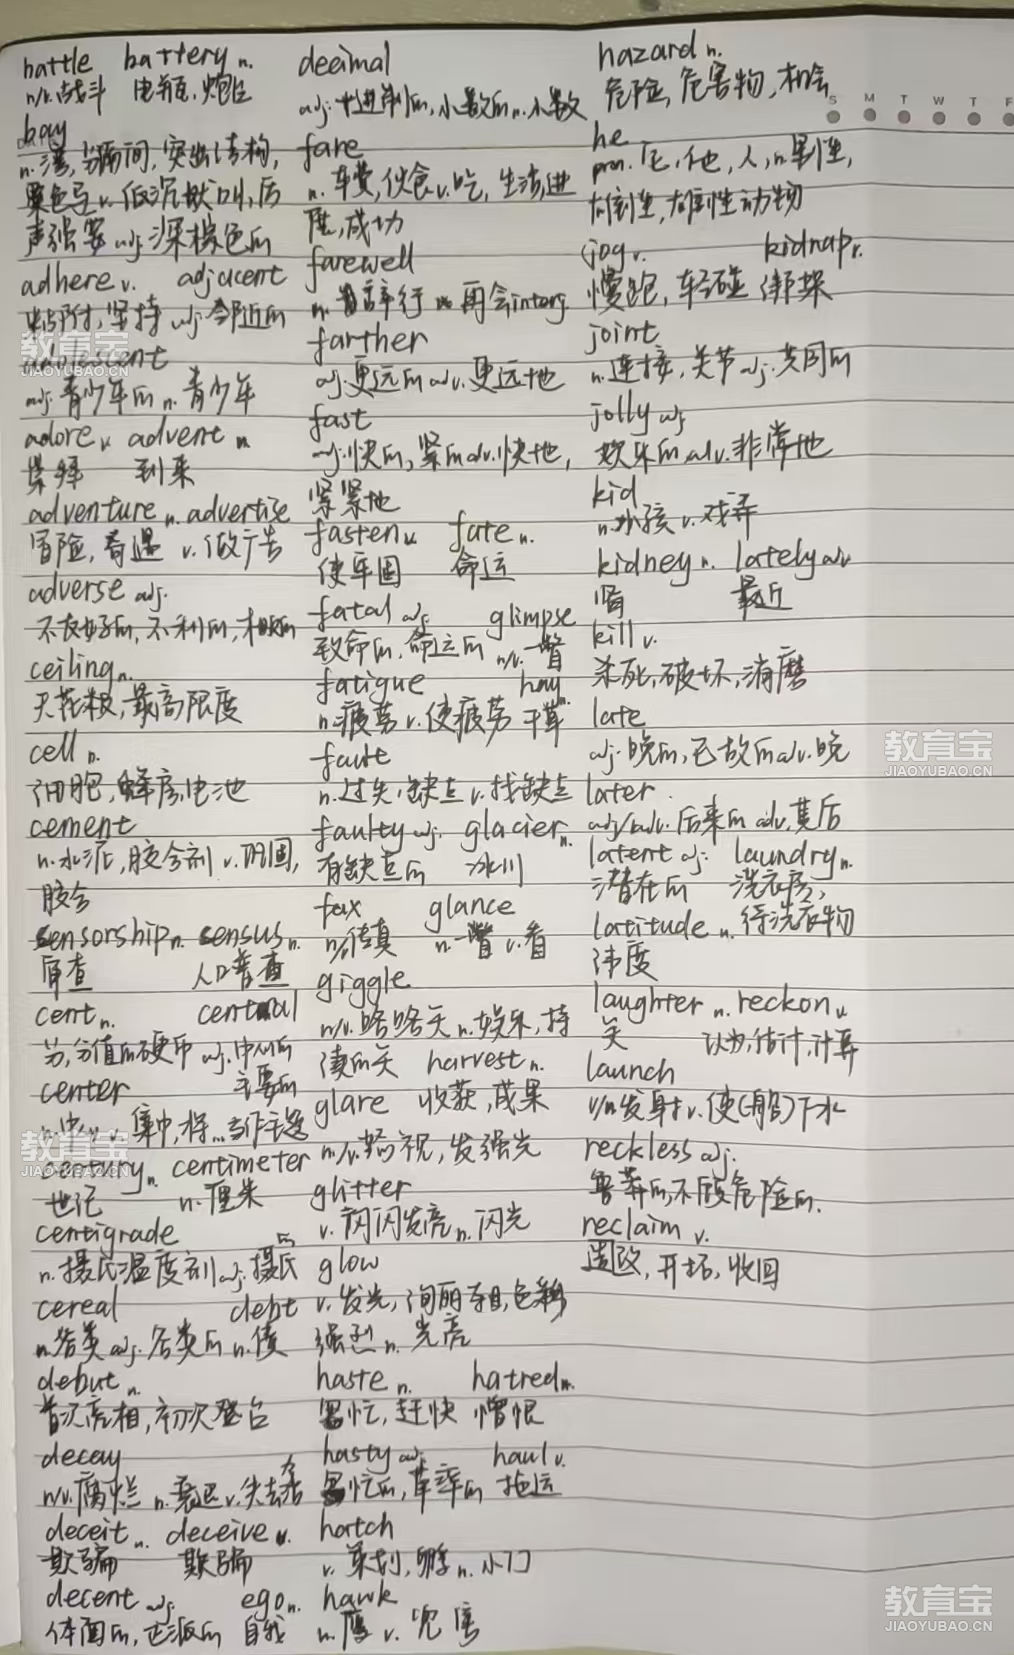 battle battery n.
n/v.战斗 电瓶,炮台
bay
n.湾,分隔间,突出结构,
栗色马 v.低沉吠叫,厉
声强要 adj.深棕色的
adhere v. adjacent
粘附,坚持 adj.邻近的
adolescent
adj.青少年的 n.青少年
adore v. advent n.
崇拜 到来
adventure n. advertise
冒险,奇遇 v.做广告
adverse adj.
不友好的,不利的,相反的
ceiling n.
天花板,最高限度
cell n.
细胞,蜂房,电池
cement
n.水泥,胶合剂 v.巩固,
胶合
censorship n. census n.
审查 人口普查
cent n. central
分,分值的硬币 adj.中心的
center 主要的
集中,将...当作主题
century n. centimeter
世纪 n.厘米
centigrade
n.摄氏温度刻 adj.摄氏的
cereal debt
n.谷类 adj.谷类的 n.债
debut n.
首次亮相,初次登台
decay
n/v.腐烂 n.衰退 v.失去活力
deceit n. deceive v.
欺骗 欺骗
decent adj. ego n.
体面的,正派的 自我
decimal
adj.十进制的,小数的 n.小数
fare
n.车费,伙食 v.吃,生活,进
展,成功
farewell
n.辞行 再会 interj.
farther
adj.更远的 adv.更远地
fast
adj.快的,紧的 adv.快地,
紧紧地
fasten v. fate n.
使牢固 命运
fatal adj. glimpse
致命的,命运的 n/v.一瞥
fatigue hay n.
n.疲劳 v.使疲劳 干草
fault
n.过失,缺点 v.找缺点
faulty adj. glacier n.
有缺点的 冰川
fax glance
n/v.传真 n.一瞥 v.看
giggle
n/v.咯咯笑 n.娱乐,持
续的笑 harvest n.
glare 收获,成果
n./v.怒视,发强光
glitter
v.闪闪发亮 n.闪光
glow
v.发光,绚丽夺目,色彩
强烈 n.光亮
haste n. hatred n.
匆忙,赶快 憎恨
hasty adj. haul v.
匆忙的,草率的 拖运
hatch
v.策划,孵 n.小门
hawk
n.鹰 v.兜售
hazard n.
危险,危害物,机会
he
pron.它,他,人,n.男性,
雄性,雄性动物
jog v. kidnap v.
慢跑,轻碰 绑架
joint
n.连接,关节 adj.共同的
jolly adj
欢乐的 adv.非常地
kid
n.小孩 v.戏弄
kidney n. lately adv
肾 最近
kill v.
杀死,破坏,消磨
late
adj.晚的,已故的 adv.晚
later
adj/adv.后来的 adv.其后
latent adj. laundry n.
潜在的 洗衣房,
latitude n. 待洗衣物
纬度
laughter n. reckon v.
笑 认为,估计,计算
launch
v/n发射 v.使(船)下水
reckless adj.
鲁莽的,不顾危险的.
reclaim v.
改,开垦,收回
S M T W T F
教育宝
JIAOYUBAO.CN
教育宝
JIAOYUBAO.CN
教育宝
JIAOYUBAO.CN
教育宝
JIAOYUBAO.CN